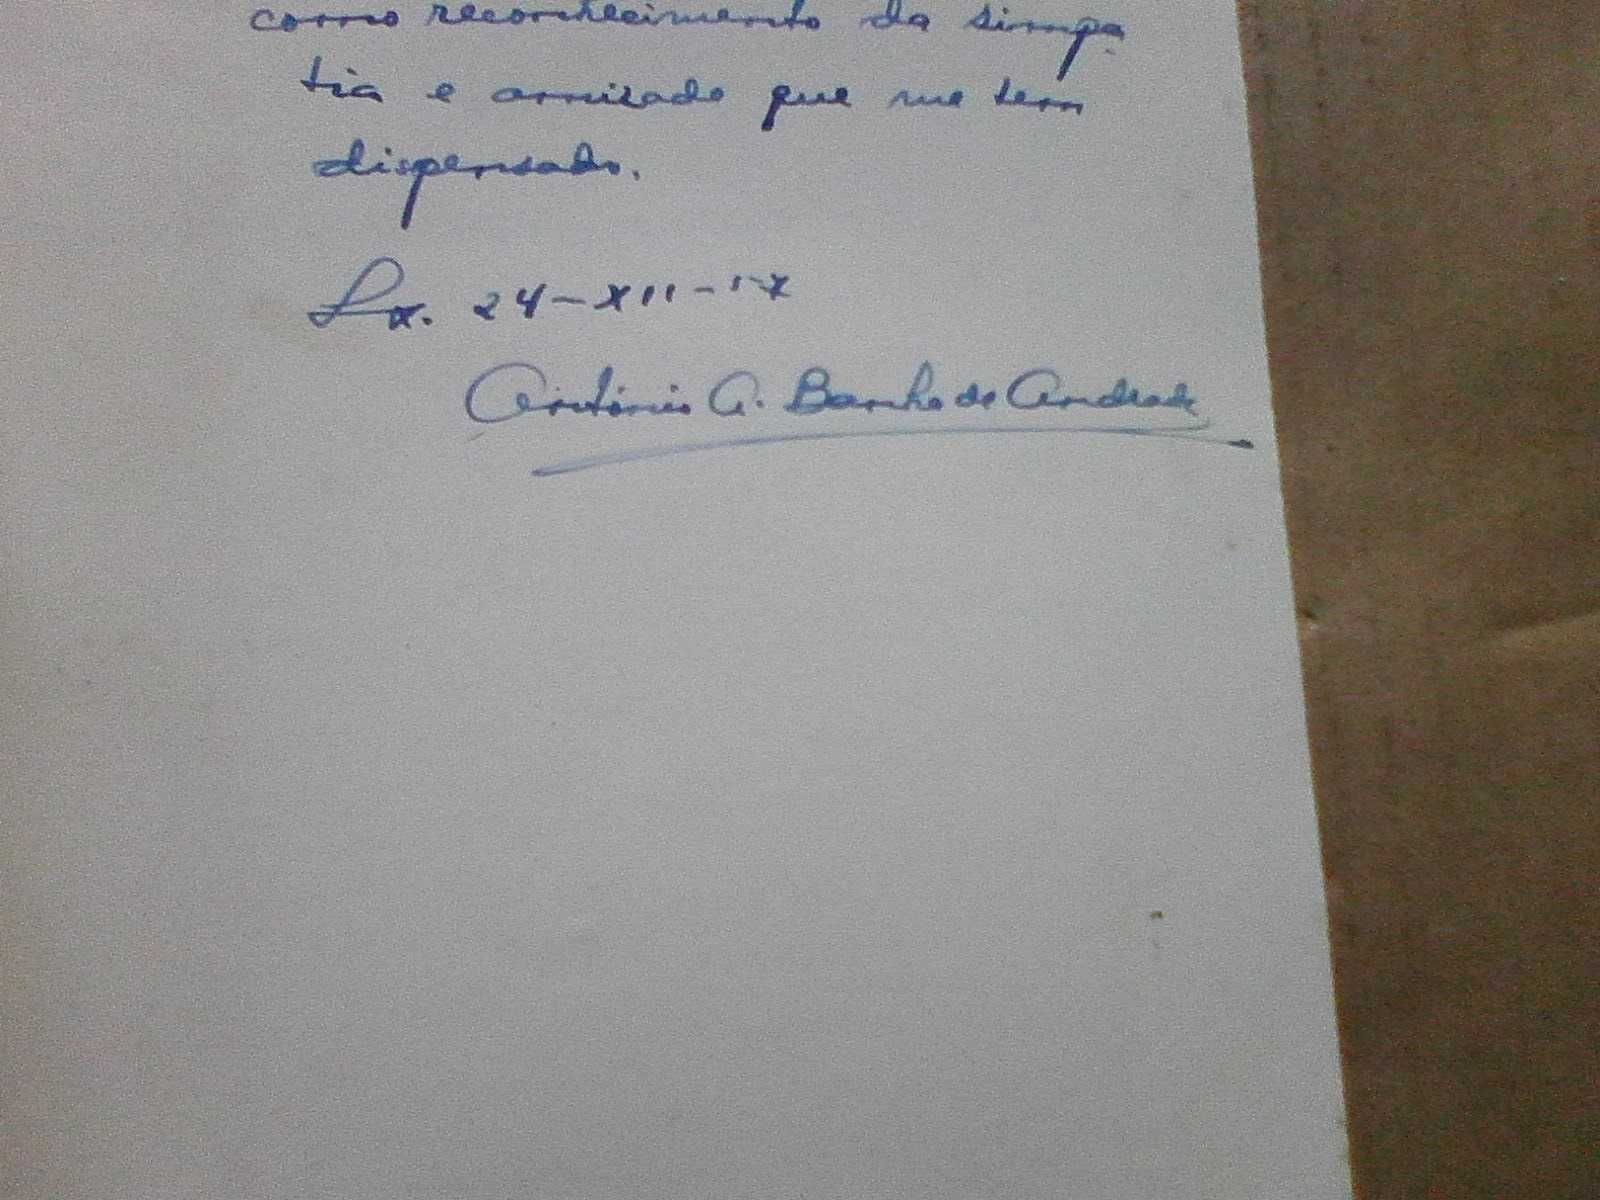 como reconhecimento da simpa-
tia e amizade que me tem
dispensado.
Lx. 24-XII-
António A. Banha de Andrade